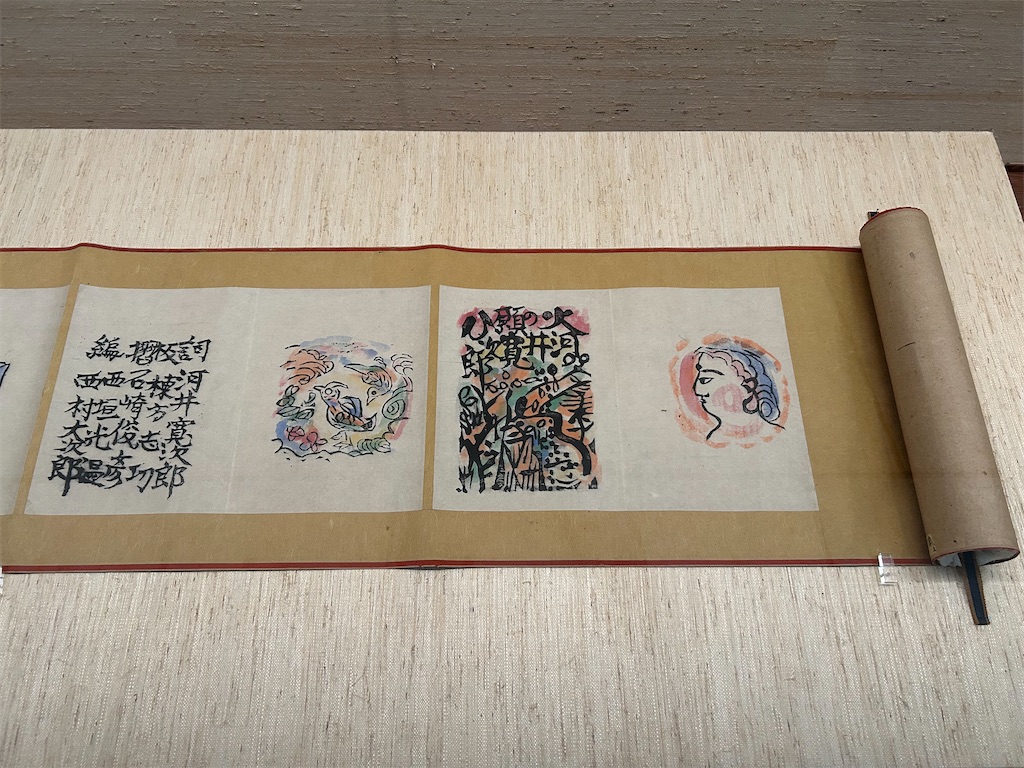 火の願ひ
河井寬次郎
詞 河井寛次郎
板 棟方志功
摺 石崎俊彦
西垣光温
編 西村大次郎